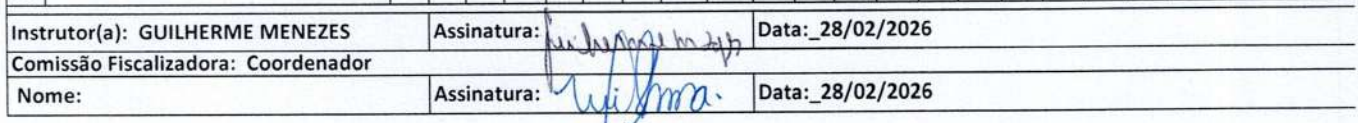 Instrutor(a): GUILHERME MENEZES Assinatura: Data:_28/02/2026
Comissão Fiscalizadora: Coordenador
Nome: Assinatura: Data:_28/02/2026